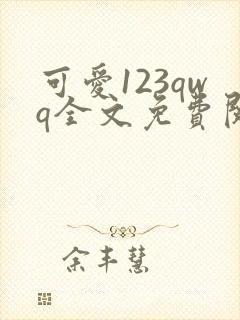 可愛123qw
q全文免費
余丰慧